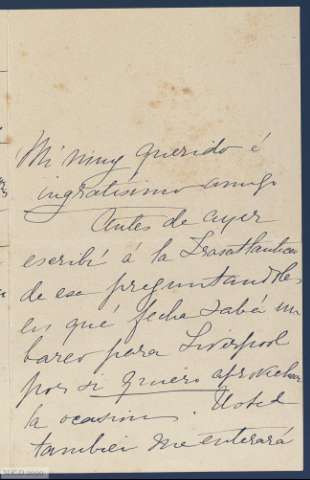 Mi muy querido é
ingratisimo amigo
Antes de ayer
escribí á la Trasatlantica
de esa preguntandoles
en qué fecha salía un
barco para Liverpool
por si quiero aprovechar
la ocasion. Usted
tambien me enterará